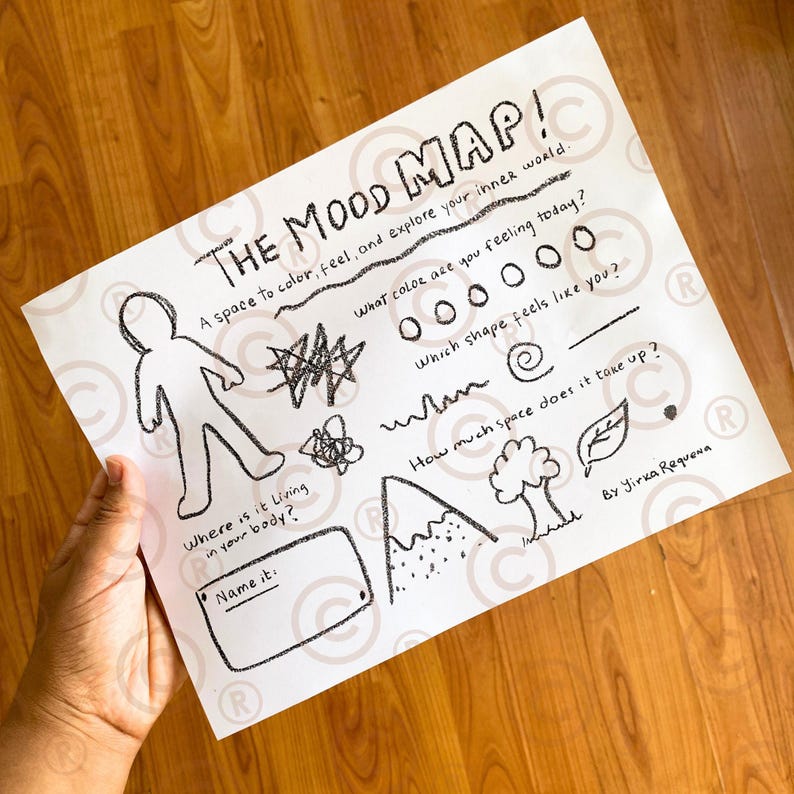 THE MOOD MAP!
A space to color, feel, and explore your inner world.
What color are you feeling today?
Which shape feels like you?
How much space does it take up?
Where is it living
in your body?
Name it:
BY Yirka Requena